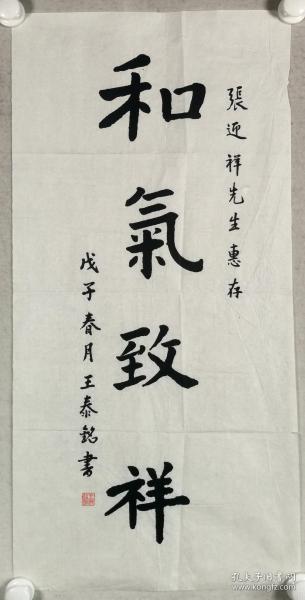 張迎祥先生惠存
和氣致祥
戊子春月王泰銘書
孔夫子旧书网